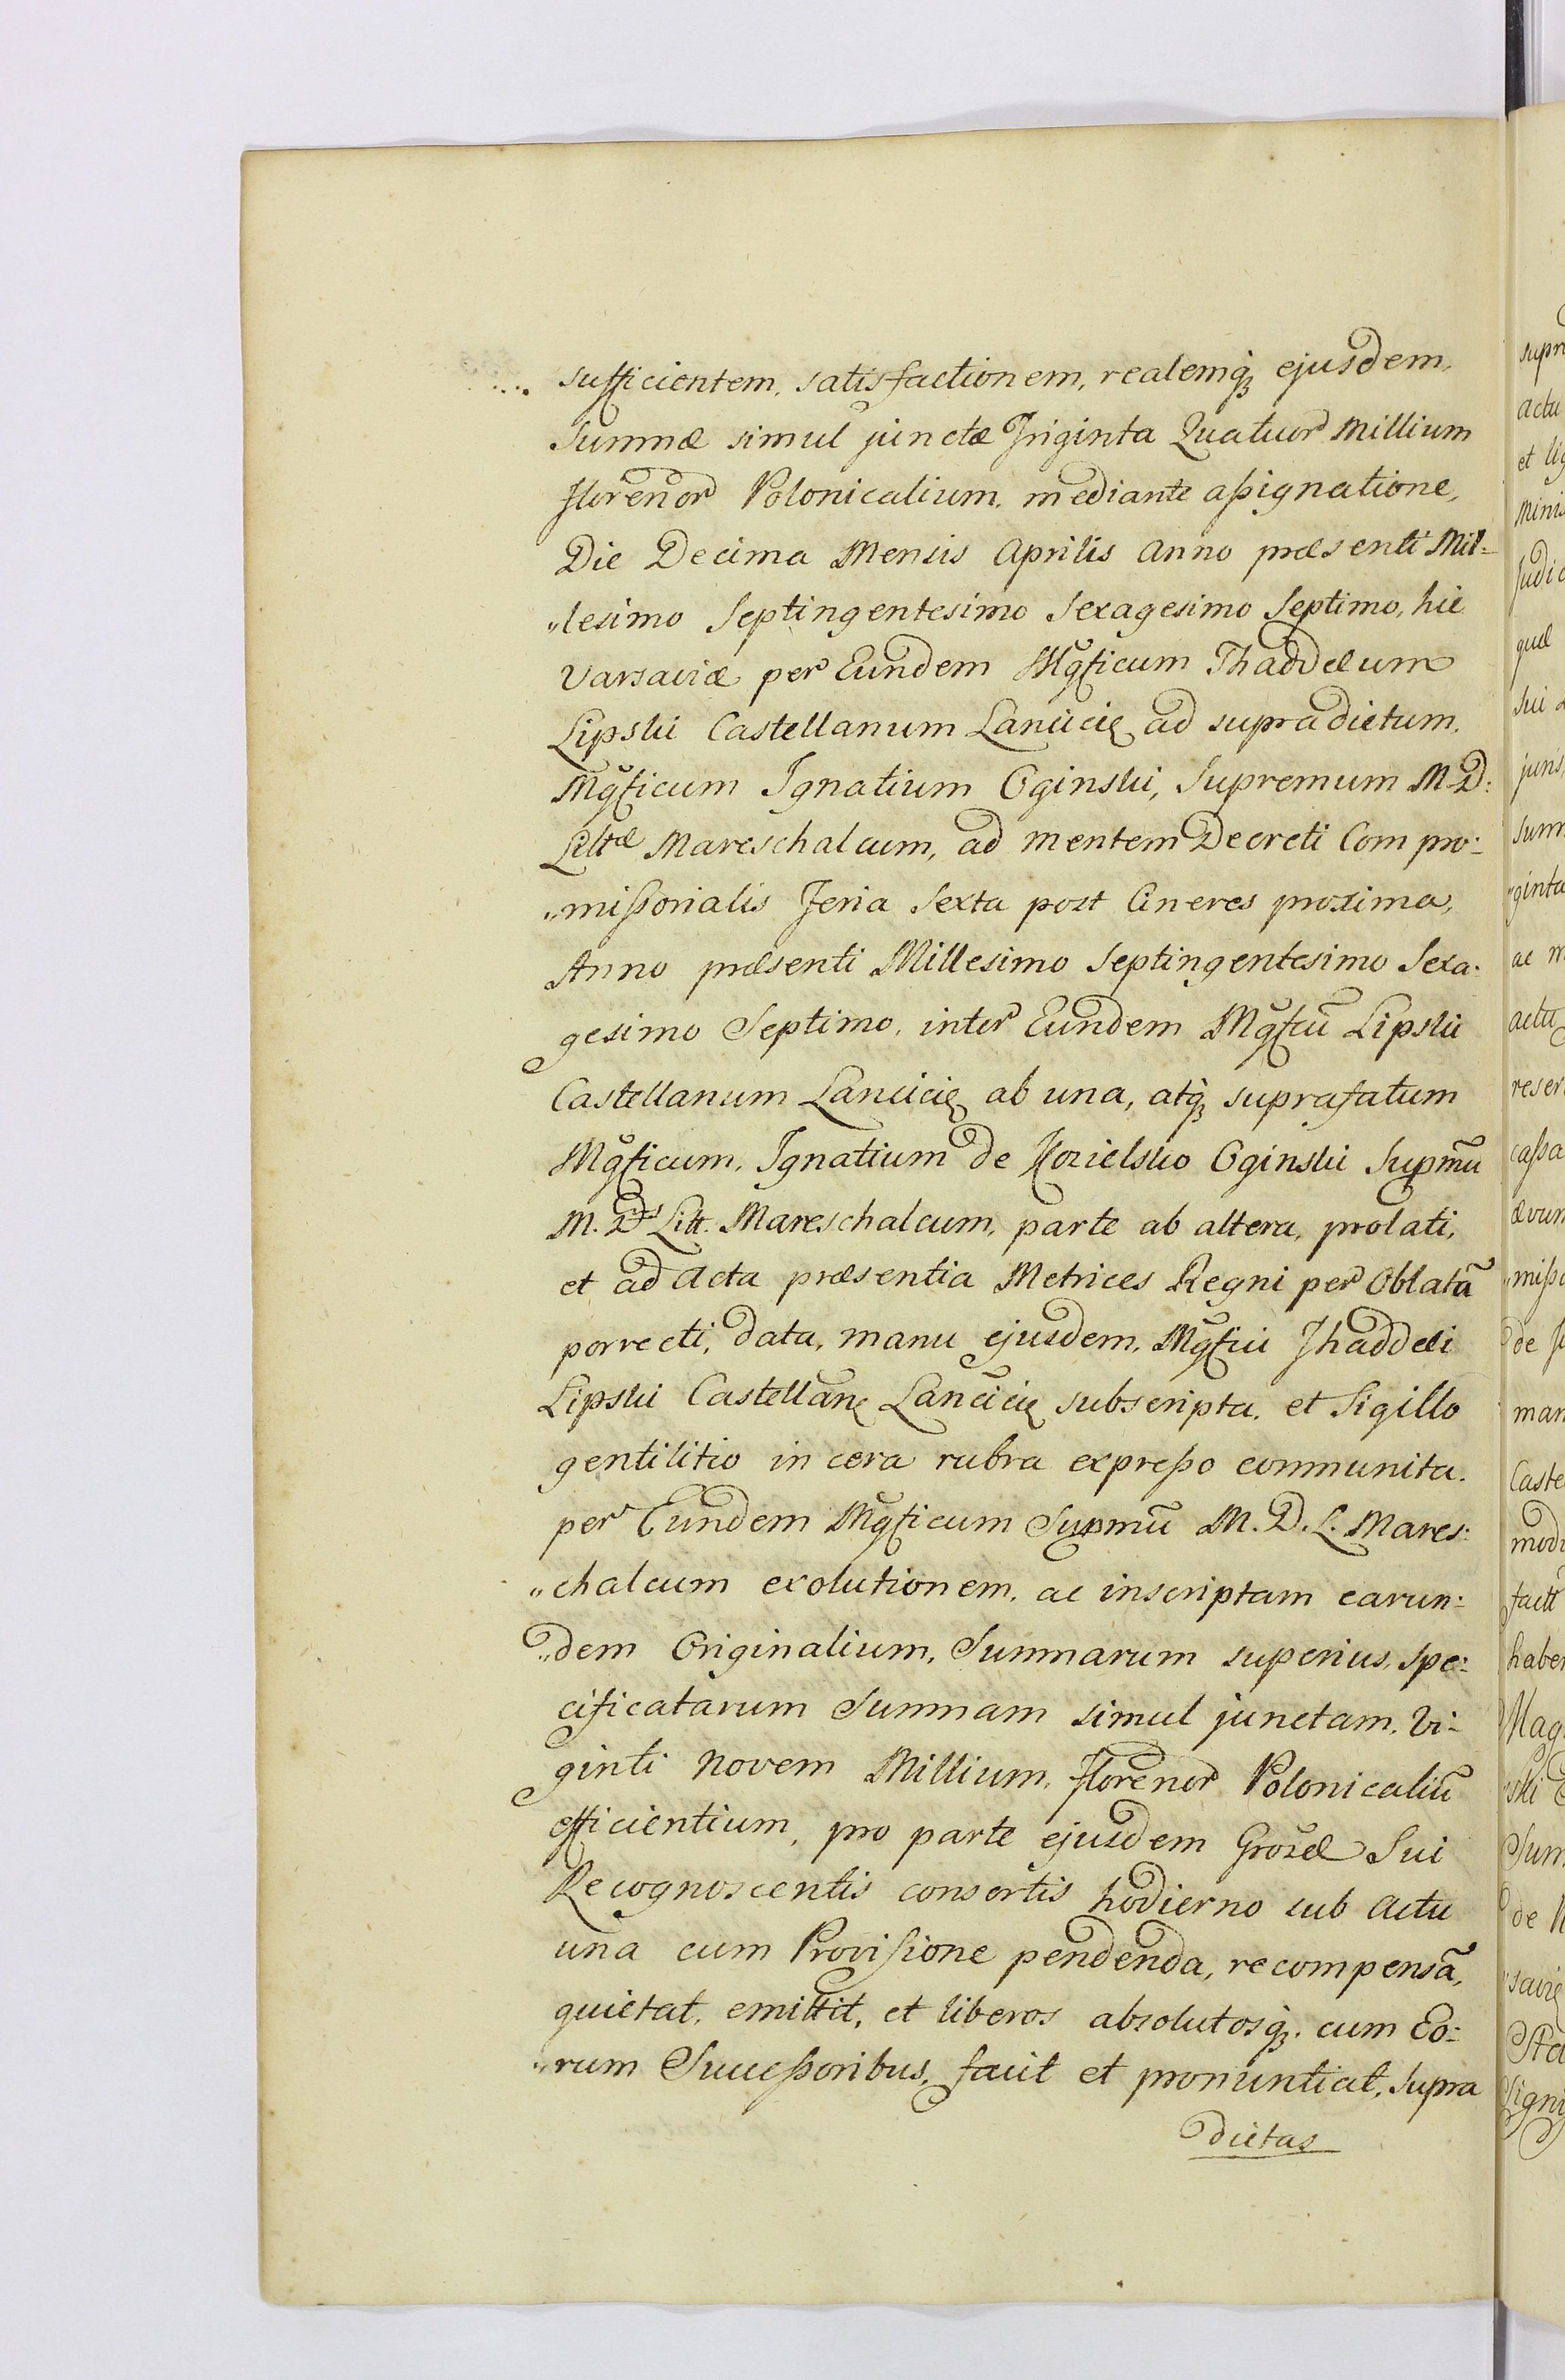 sufficientem, satisfactionem, realemq́ꝫ ejusdem,
Summæ simul junctæ Triginta Quatuor Millium
Floreñor Polonicalium, mediante aßignatione,
Die Decima Mensis Aprilis Anno præsenti Mil=
„lesimo Septingentesimo Sexagesimo Septimo, hic
Varsaviæ per Eundem Mgficum Thaddæum
Lipski Castellanum Lancicię ad supradictum,
Mgficum Ignatium Oginski, Supremum M. D:
Littæ Mareschalcum, ad mentem Decreti Compro:
„mißorialis Feria Sexta post Cineres proxima,
Anno præsenti Millesimo Septingentesimo Sexa:
gesimo Septimo, inter Eundem Mgfcū Lipski
Castellanum Lancicię ab una, atq́ꝫ suprafatum
Mgficum, Ignatium de Kozielsko Oginski Supmū
M. Dˢ Litt. Mareschalcum, parte ab altera, prolati,
et ad Acta præsentia Metrices Regni per Oblatā
porrecti, data, manu ejusdem, Mgfici Thaddæi
Lipski Castellanę Lancicię subscripta, et Sigillo
gentilitio in cera rubra expreßo communita.
per Eundem Mgficum Supmū M. D. L. Mares:
„chalcum exolutionem, ac inscriptam earun:
„dem Originalium, Summarum superius, spe:
cificatarum Summam simul junctam, Vi:
ginti Novem Millium, Florenor Polonicaliū
efficientium, pro parte ejusdem Gnosæ Sui
Recognoscentis consortis hodierno sub Actu
una cum Provisione pendenda, recompensā,
quietat, emittit, et liberos absolutosq́ꝫ cum Eo:
„rum Succeßoribus, facit et pronuntiat, supra
dictas